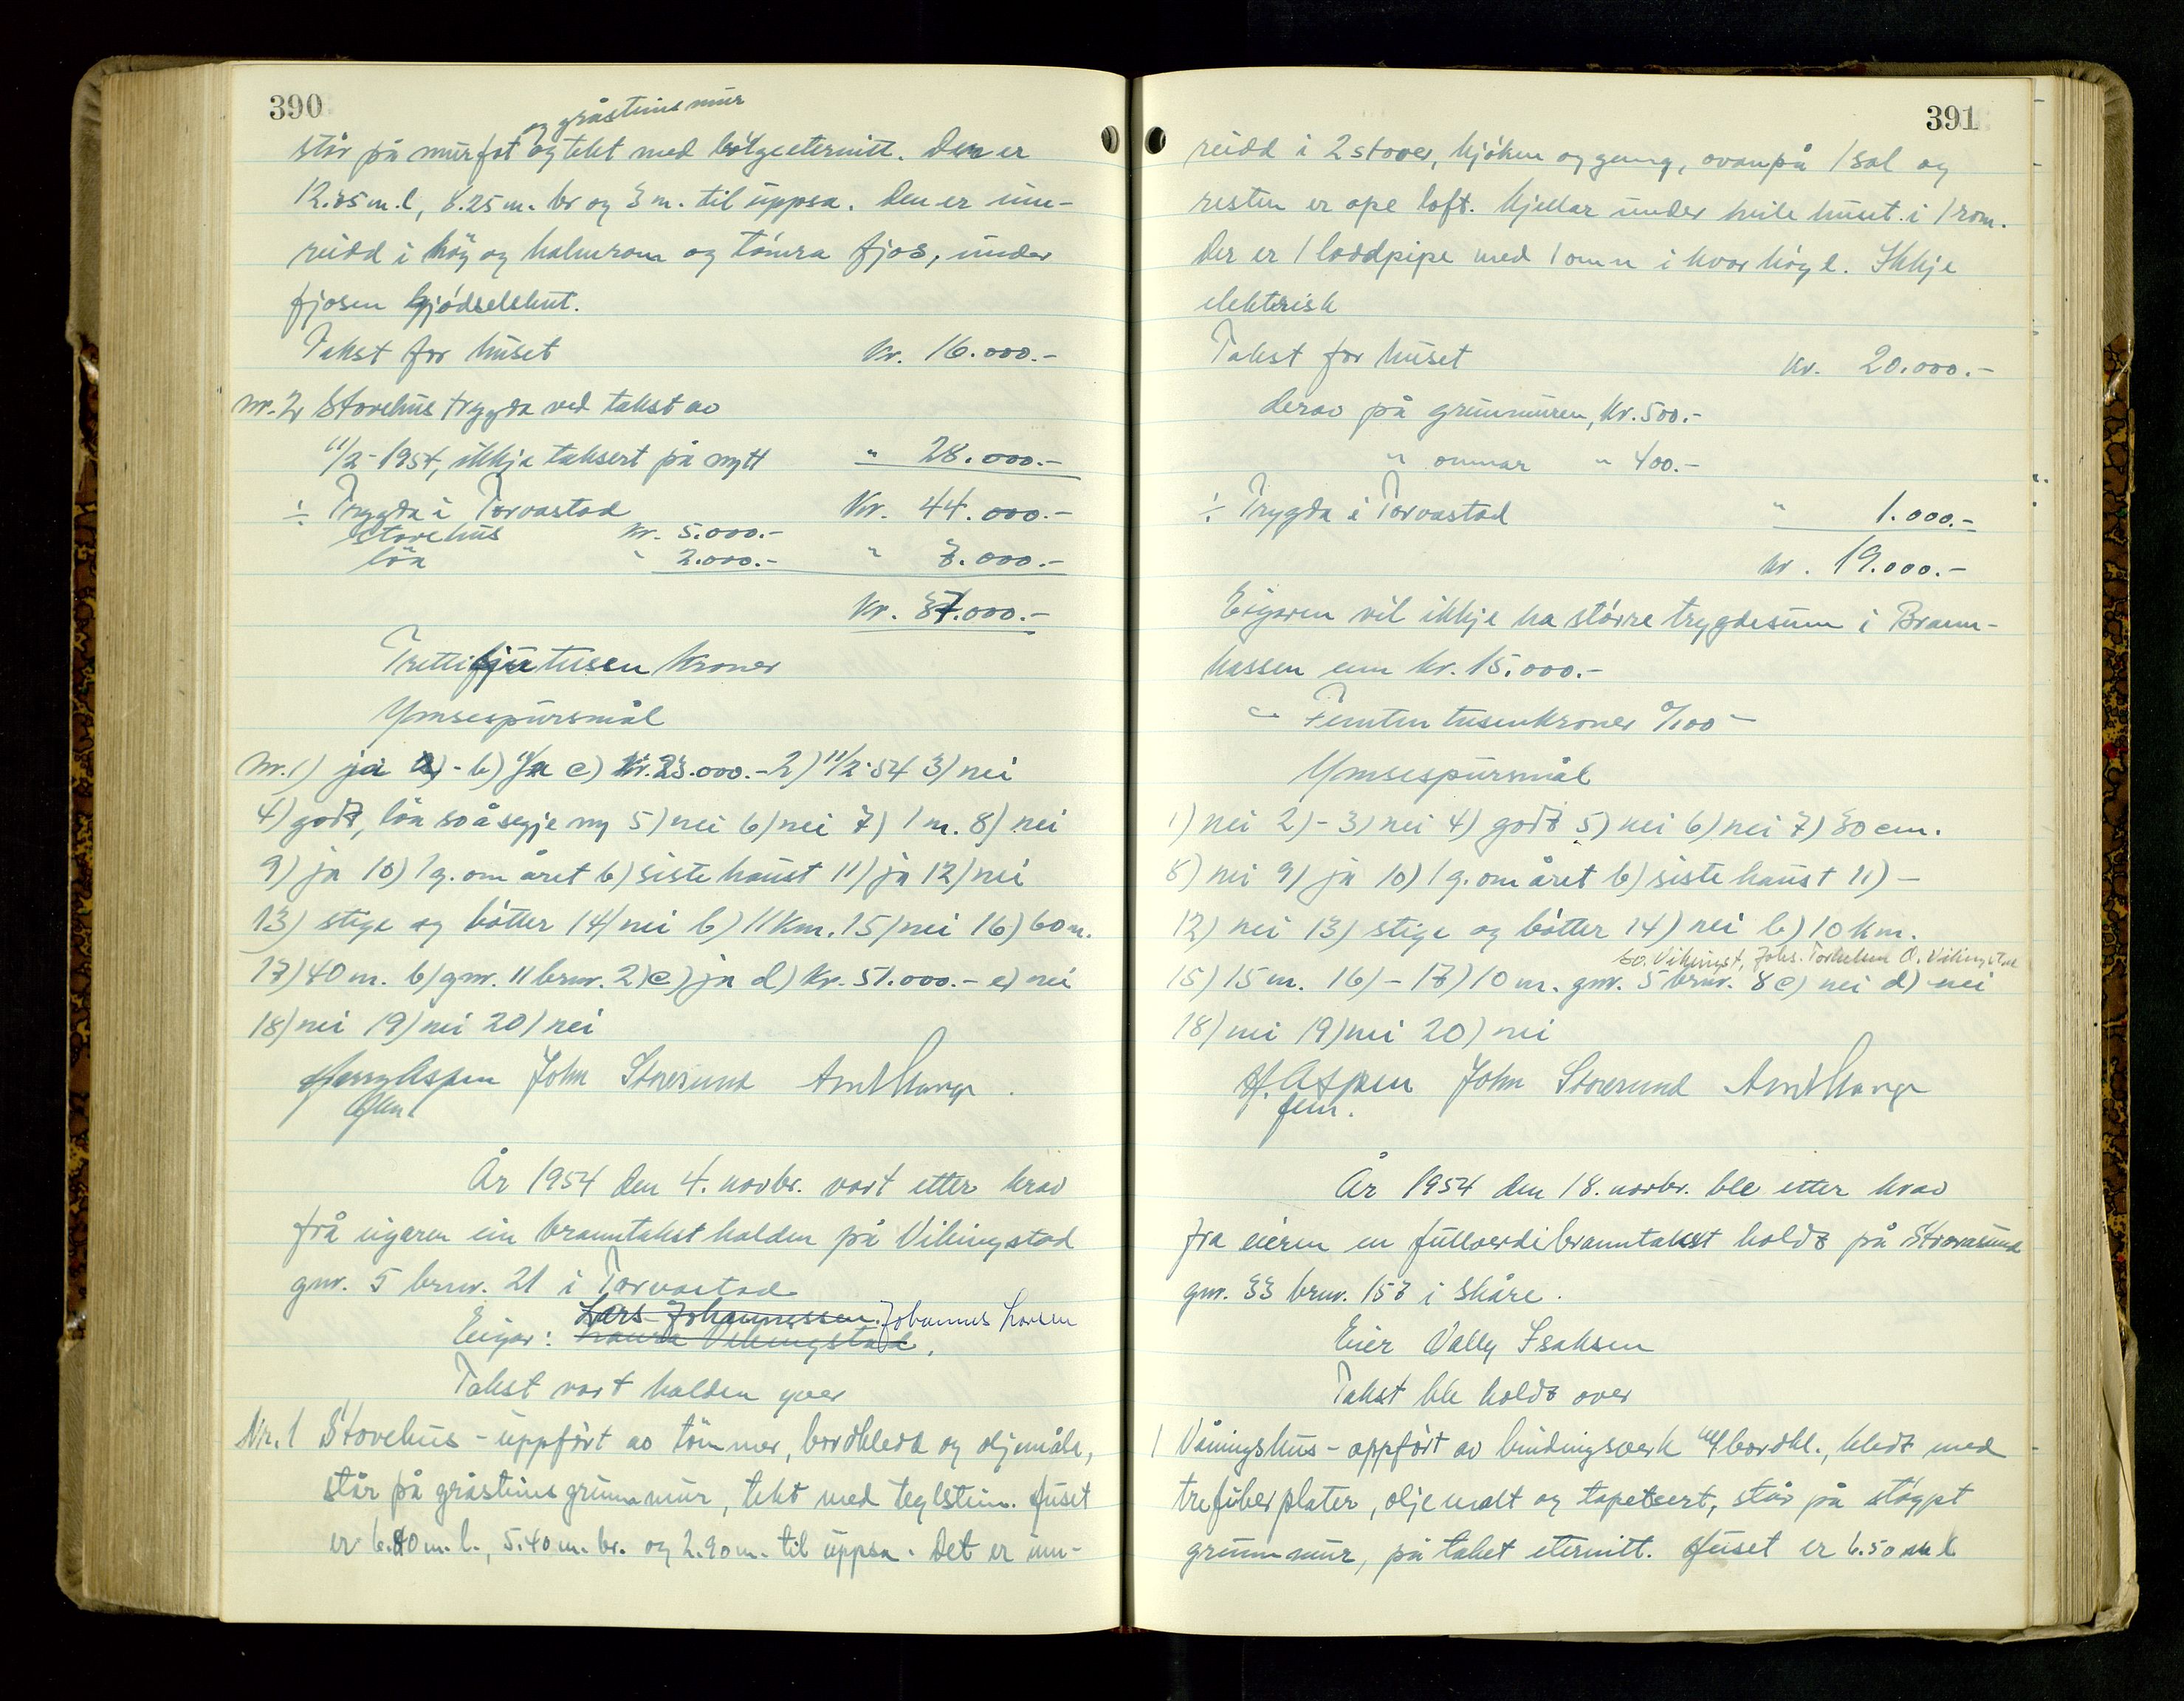 390
og gråsteinsmur
står på murfot og tekt med bølgeeternitt. Den er
12.85 m. l, 8.25 m. br og 3 m. til uppsa. Den er inn-
reidd i høy og halmrom og tømra fjos, under
fjosen gjødselskut.
Takst for huset Kr. 16.000.-
nr. 2 Stovehus trygda ved takst av
11/2-1954, ikkje taksert på nytt " 28.000.-
Kr. 44.000.-
÷ Trygda i Torvastad
stovehus kr. 5.000.-
løa " 2.000.- " 7.000.-
Kr. 37.000.-
Trettisju tusen kroner
Ymsespursmål
Nr. 1) ja - b) ja c) kr. 23.000.- 2) 11/2-54 3) nei
4) godt, løa so å segje ny 5) nei 6) nei 7) 1 m. 8) nei
9) ja 10) 1 g. om året b) siste haust 11) ja 12) nei
13) stige og bøtter 14) nei b) 11 km. 15) nei 16) 60 m.
17) 40 m. b) gnr. 11 brnr. 2) c) ja d) kr. 51.000.- e) nei
18) nei 19) nei 20) nei
Aspen John Storesund
År 1954 den 4. novbr. vart etter krav
frå eigaren ein branntakst halden på Vikingstad
gnr. 5 brnr. 21 i Torvastad
Lars Johannessen Johannes Larsen
Eigar: Vikingstad.
Takst vart halden yver
Nr. 1 Stovehus - uppført av tømmer, bordkledd og oljemåla,
står på gråsteins grunnmur, tekt med teglstein. Huset
er 6.80 m. l., 5.40 m. br. og 2.90 m. til uppsa. Det er inn-
391
reidd i 2 stover, kjøken og gang, ovanpå 1 sal og
resten er ope loft. Kjellar under heile huset i 1 rom.
Der er 1 loddpipe med 1 omn i kvar høgl. Ikkje
elektrisk
Takst for huset kr. 20.000.-
derav på grunnmuren, kr. 500.-
" omnar " 400.-
÷ Trygda i Torvastad " 1.000.-
kr. 19.000.-
Eigaren vil ikkje ha større trygdesum i Brann-
kassen enn kr. 15.000.-
Femten tusen kroner 0/100 -
Ymsespursmål
1) nei 2) - 3) nei 4) godt 5) nei 6) nei 7) 80 cm.
8) nei 9) ja 10) 1 g. om året b) siste haust 11) -
12) nei 13) stige og bøtter 14) nei b) 10 km.
Vikingst, Johs. Torkelsen O. Vikingstad
15) 15 m. 16) - 17) 10 m. gnr. 5 brnr. 8 c) nei d) nei
18) nei 19) nei 20) nei
H. Aspen John Storesund
fem.
År 1954 den 18. novbr. ble etter krav
fra eieren en fullverdibranntakst holdt på Storasund
gnr. 33 brnr. 157 i Skåre.
Eier Vally Isaksen
Takst ble holdt over
1 Våningshus - oppført av bindingsverk m/bordkl., kledt med
trefiberplater, oljemalt og tapetsert, står på støypt
grunnmur, på taket eternitt. Huset er 6.50 m l